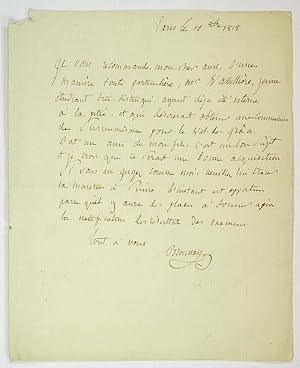 Paris le 10 8bre 1818
Je vous recommande, mon cher ami, d'une
manière toute particulière, Mr jeune
étudiant très distingué, ayant déjà été interne
à la pitié, et qui désirerait obtenir une commission
de pour le Val-de-grâce
C'est un ami de mon fils, c'est un bon sujet
et je crois que ce serait une bonne acquisition
Si vous en jugez comme moi, veuillez lui tracer
sa marche à suivre. L'instant est opportun
parce qu'il y aura des places à donner après
la notification des résultats des examens
Tout à vous
Broussais